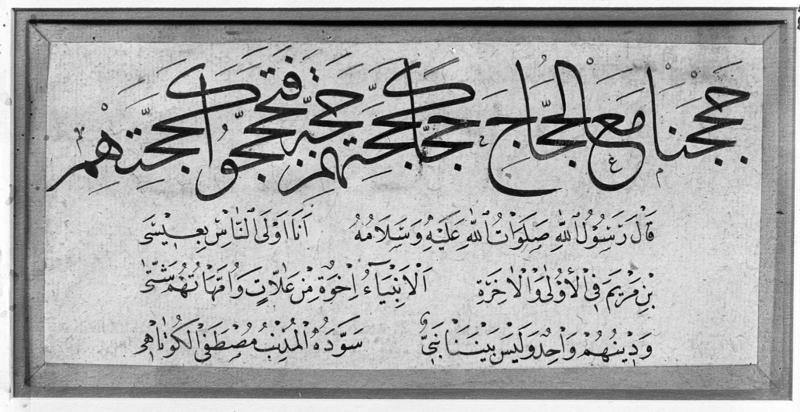 حججنا مع الحجاج حجا كحجتهم حجة فتحججوا كحجتهم
قَالَ رَسُوْلُ اللّٰهِ صَلَوَاتُ اللّٰهِ عَلَيْهِ وَسَلَامُهُ اَنَا اَوْلَى النَّاسِ بِعِيْسَى
بْنِ مَرْيَمَ فِي الْاُوْلٰى وَالْاٰخِرَةِ اَلْاَنْبِيَاءُ اِخْوَةٌ مِنْ عَلَّاتٍ وَاُمَّهَاتُهُمْ شَتّٰى
وَدِيْنُهُمْ وَاحِدٌ وَلَيْسَ بَيْنَنَا نَبِيٌّ سَوَّدَهُ الْمُذْنِبُ مُصْطَفَى الْكُوتَاهِي